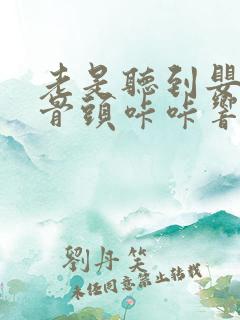 老是聽到嬰
骨頭咔咔響
劉丹笑
未经同意禁止转载